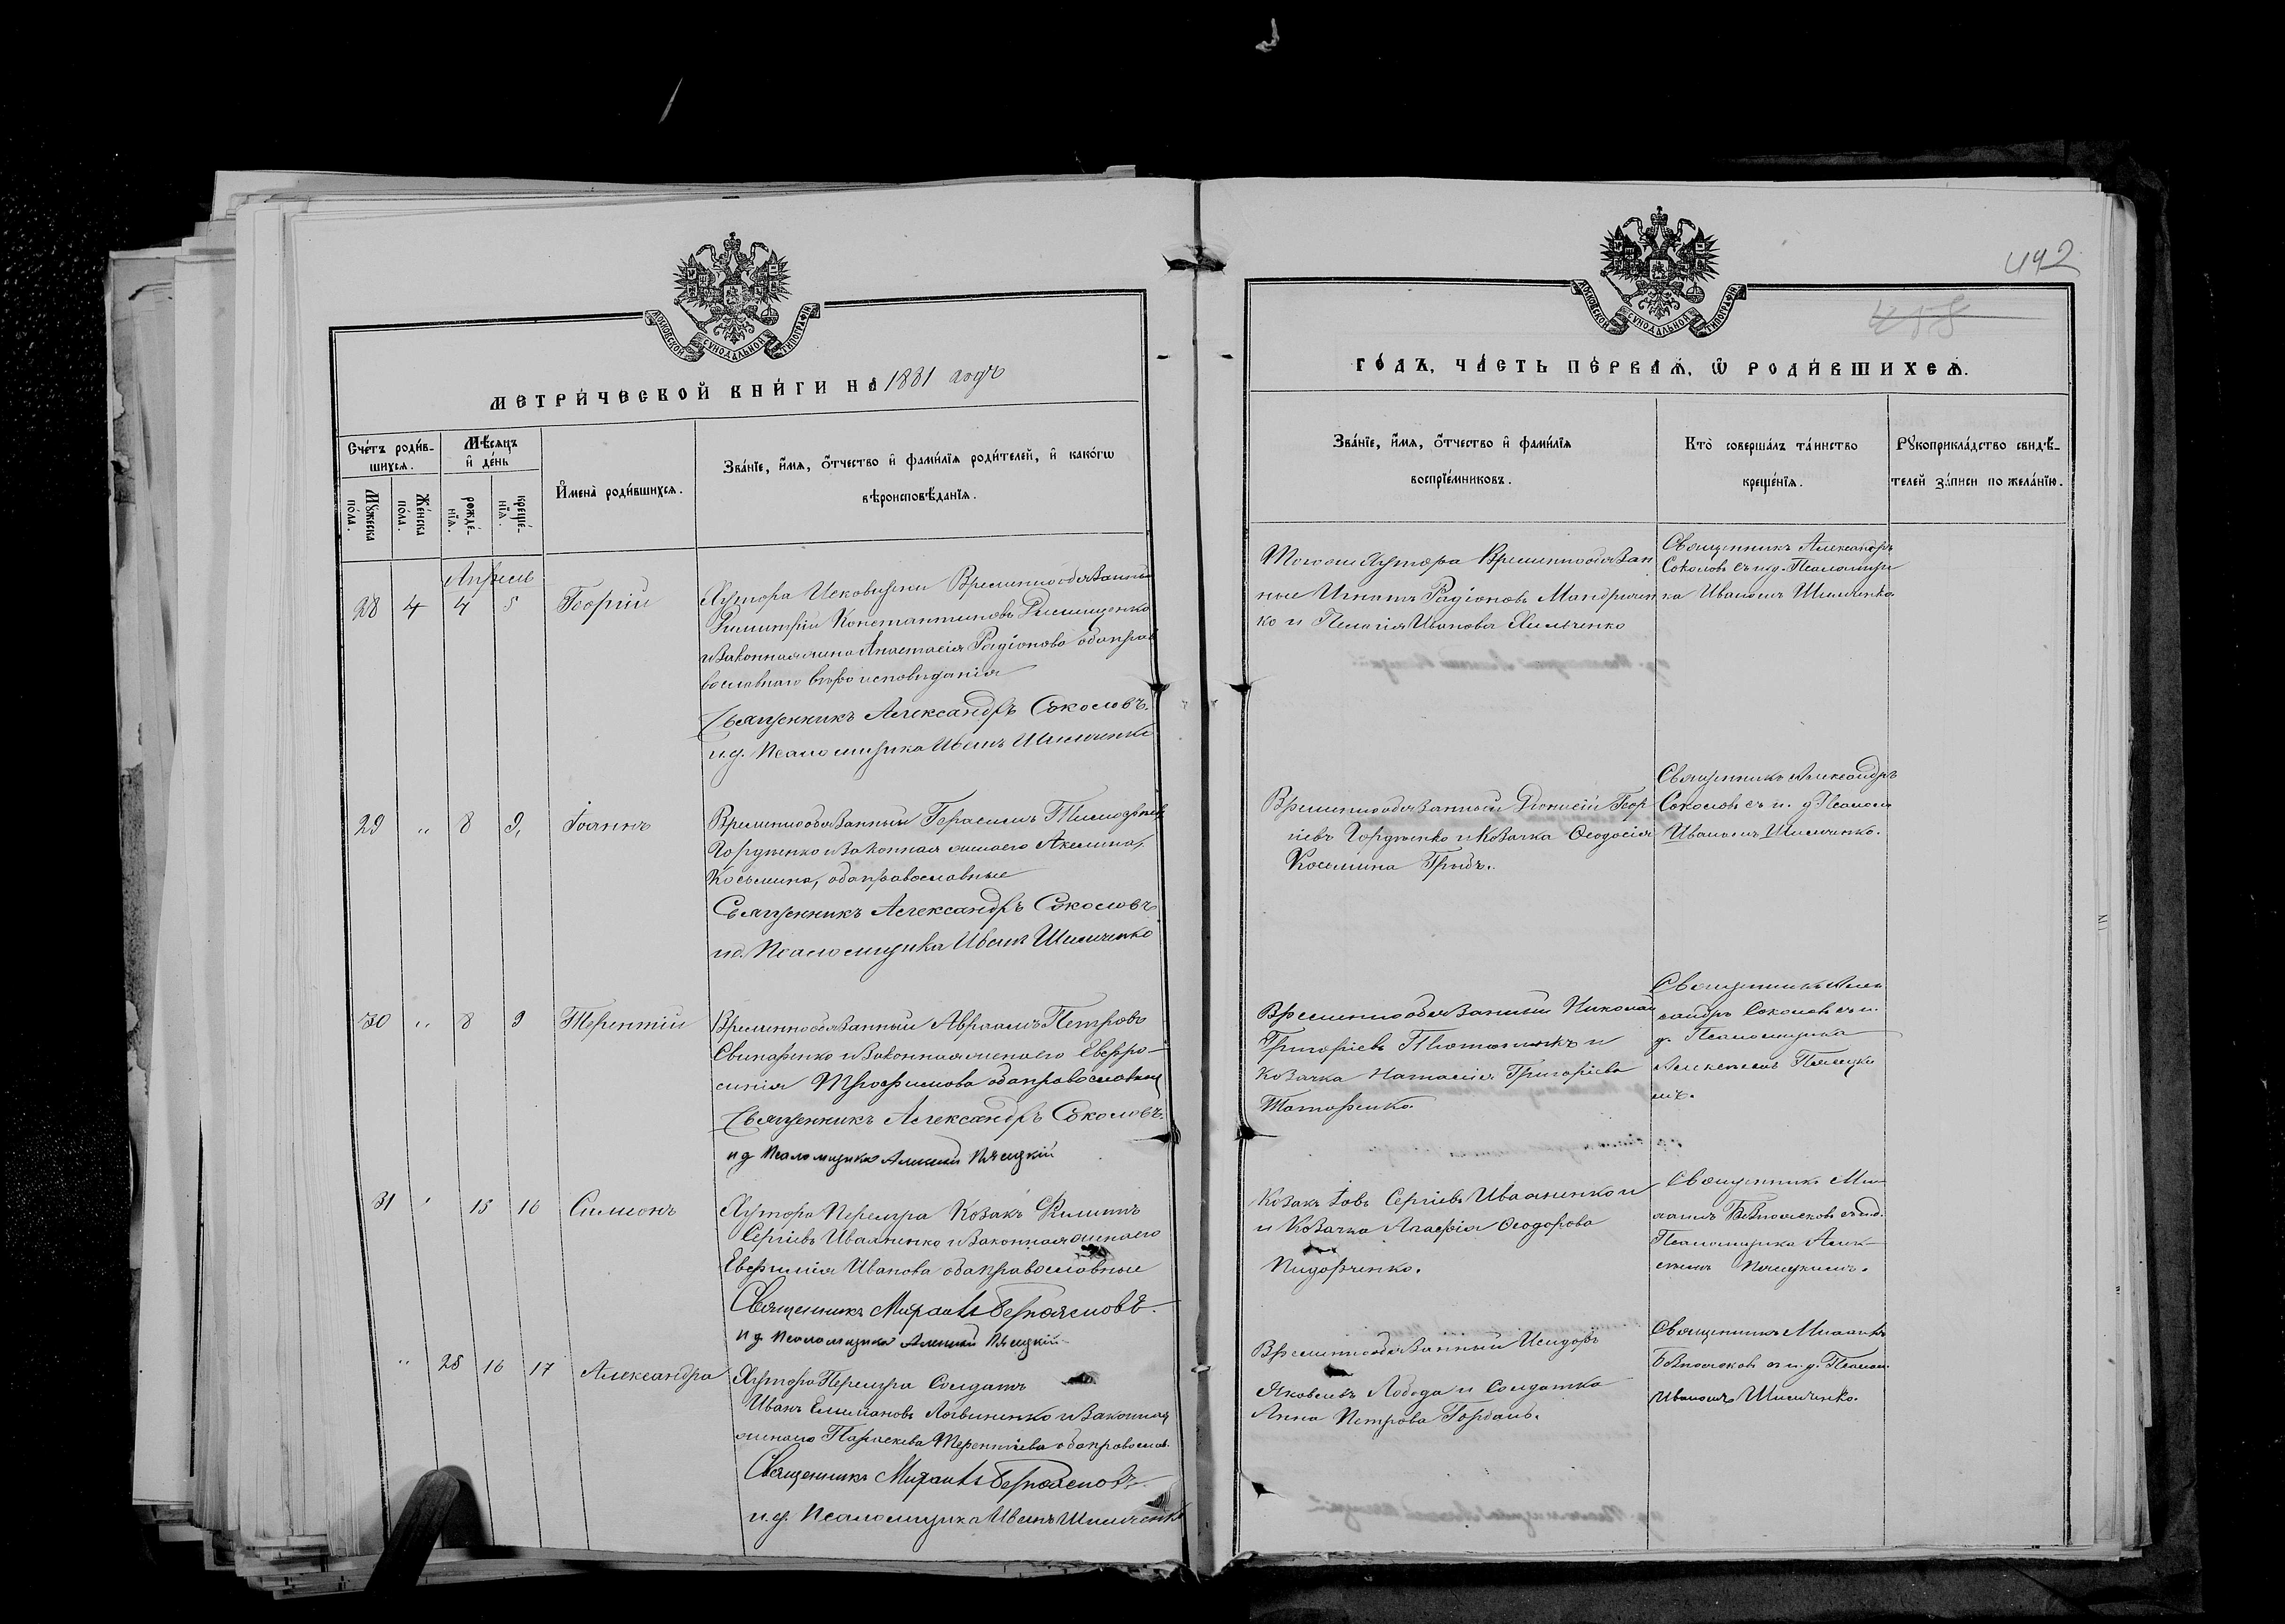 492
458
МОСКОВСКОЙ СУНОДАЛЬНОЙ ТИПОГРАФІИ
МОСКОВСКОЙ СУНОДАЛЬНОЙ ТИПОГРАФІИ
МЕТРИ́ЧЕСКОЙ КНИ́ГИ НА 1881 годъ
ГО́ДЪ, ЧА́СТЬ ПЕ́РВАѦ, Ѡ҆ РОДИ́ВШИХСѦ.
Сче́тъ роди́в-
шихсѧ.
Мѣ́сяцъ
и҆ де́нь
Мꙋжеска
по́ла.
Же́нска
по́ла.
рожде́-
нїѧ.
креще́-
нїѧ.
И҆мена̀ роди́вшихсѧ.
Зва́нїе, и҆́мѧ, ѻ҆́тчество и҆ фами́лїѧ роди́телей, и҆ како́гѡ
вѣроисповѣ́данїѧ.
Зва́нїе, и҆́мѧ, ѻ҆́тчество и҆ фами́лїѧ
воспрїе́мниковъ.
Кто̀ соверша́лъ та́инство
креще́нїѧ.
Рꙋкоприкла́дство свидѣ́-
телей за́писи по жела́нїю.
Апрель
28 4 4 5 Георгій
Хутора Временнообязанный
Димитрій Константиновъ
и законная жена Анастасія Радіонова оба прав
вославнаго вероисповѣданія
Священникъ Александръ Соколовъ.
и.д. Псаломщика Иванъ Шимченко
Того же Хутора Временнообязан
ные Игнатъ Радіоновъ
ко и Пелагія Иванова
Священникъ Александръ
Соколовъ съ и.д. Псаломщи
ка Иваномъ Шимченко
29 „ 8 9, Іоаннъ
Временнообязанный Герасимъ
Гордѣенко и законная жена его Акелина,
Косьмина, оба православные
Священникъ Александръ Соколовъ
и.д. Псаломщика Иванъ Шимченко
Временнообязанный Діонисій Геор
гіевъ Гордѣенко и Козачка Ѳеодосія
Косьмина Грида.
Священникъ Александръ
Соколовъ съ и. д. Псалом
Иваномъ Шимченко.
30 „ 8 9 Терентій
Временнообязанный Авраамъ Петровъ
Свинаренко и законная жена его Евфро-
синія Трофимова оба православные
Священникъ Александръ Соколовъ.
и д Псаломщика Алексій Пясецкій
Временнообязанный Николай
Григоріевъ и
Козачка Наталія Григоріева
Татаренко.
Священникъ Алек
сандръ Соколовъ съ и.
д. Псаломщика
Алексѣемъ Пясецки
мъ.
31 „ 15 16 Симеонъ
Хутора Перегура Козакъ Филиппъ
Сергіевъ Иваненко и законная жена его
Евфимія Иванова оба православные
Священникъ
и д Псаломщика Алексій Пясецкій
Козакъ Іовъ Сергіевъ Иваненко и
и Козачка Агафія Ѳеодорова
Пидорченко.
Священникъ Ми-
съ и.д.
Псаломщика Алек-
сѣемъ Пясецкимъ.
„ 25 16 17 Александра
Хутора Перегура Солдатъ
Иванъ Литвиненко и законная
жена его Параскева Терентіева оба православ.
Священникъ
и.д. Псаломщика Иванъ Шимченко
Временнообязанный Исидоръ
Яковлевъ Лобода и Солдатка
Анна Петрова Горбань.
Священникъ
съ и.д. Псалом
Иваномъ Шимченко.